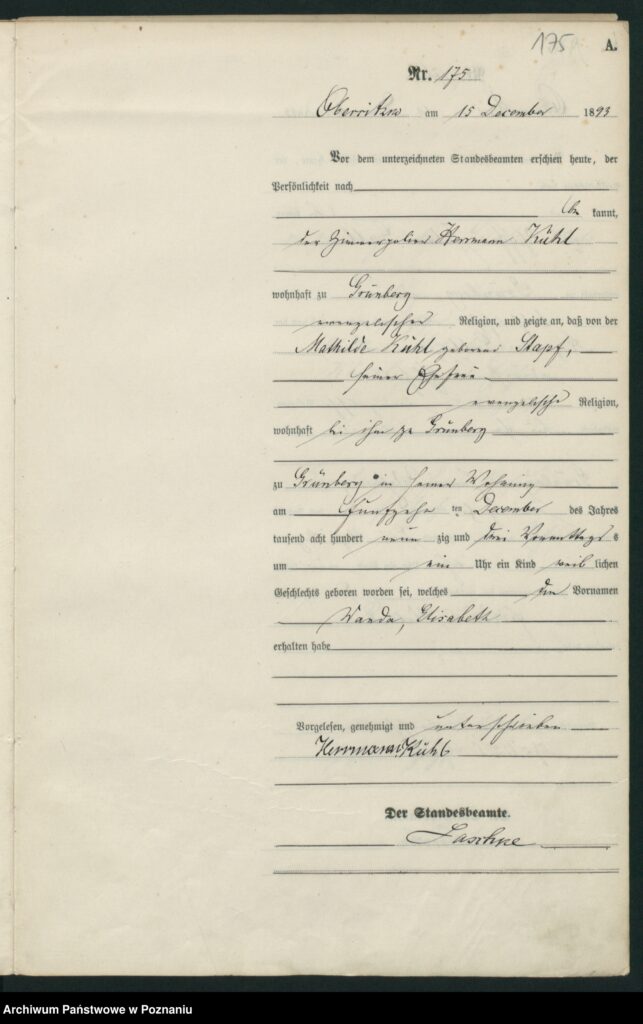 175
A.
Nr. 175
Obersitzko am 15 December 1893
Vor dem unterzeichneten Standesbeamten erschien heute, der
Persönlichkeit nach
be kannt,
der Zimmerpolier Herrmann Kühl
wohnhaft zu Grünberg
evangelischer Religion, und zeigte an, daß von der
Mathilde Kühl geborene Stapf,
seiner Ehefrau
evangelische Religion,
wohnhaft bei ihm zu Grünberg
zu Grünberg in seiner Wohnung
am fünfzehn ten December des Jahres
tausend acht hundert neun zig und drei Vormittags s
um ein Uhr ein Kind weib lichen
Geschlechts geboren worden sei, welches die Vornamen
Wanda, Elisabeth
erhalten habe
Vorgelesen, genehmigt und unterschrieben
Herrmann Kühl
Der Standesbeamte.
Archiwum Państwowe w Poznaniu